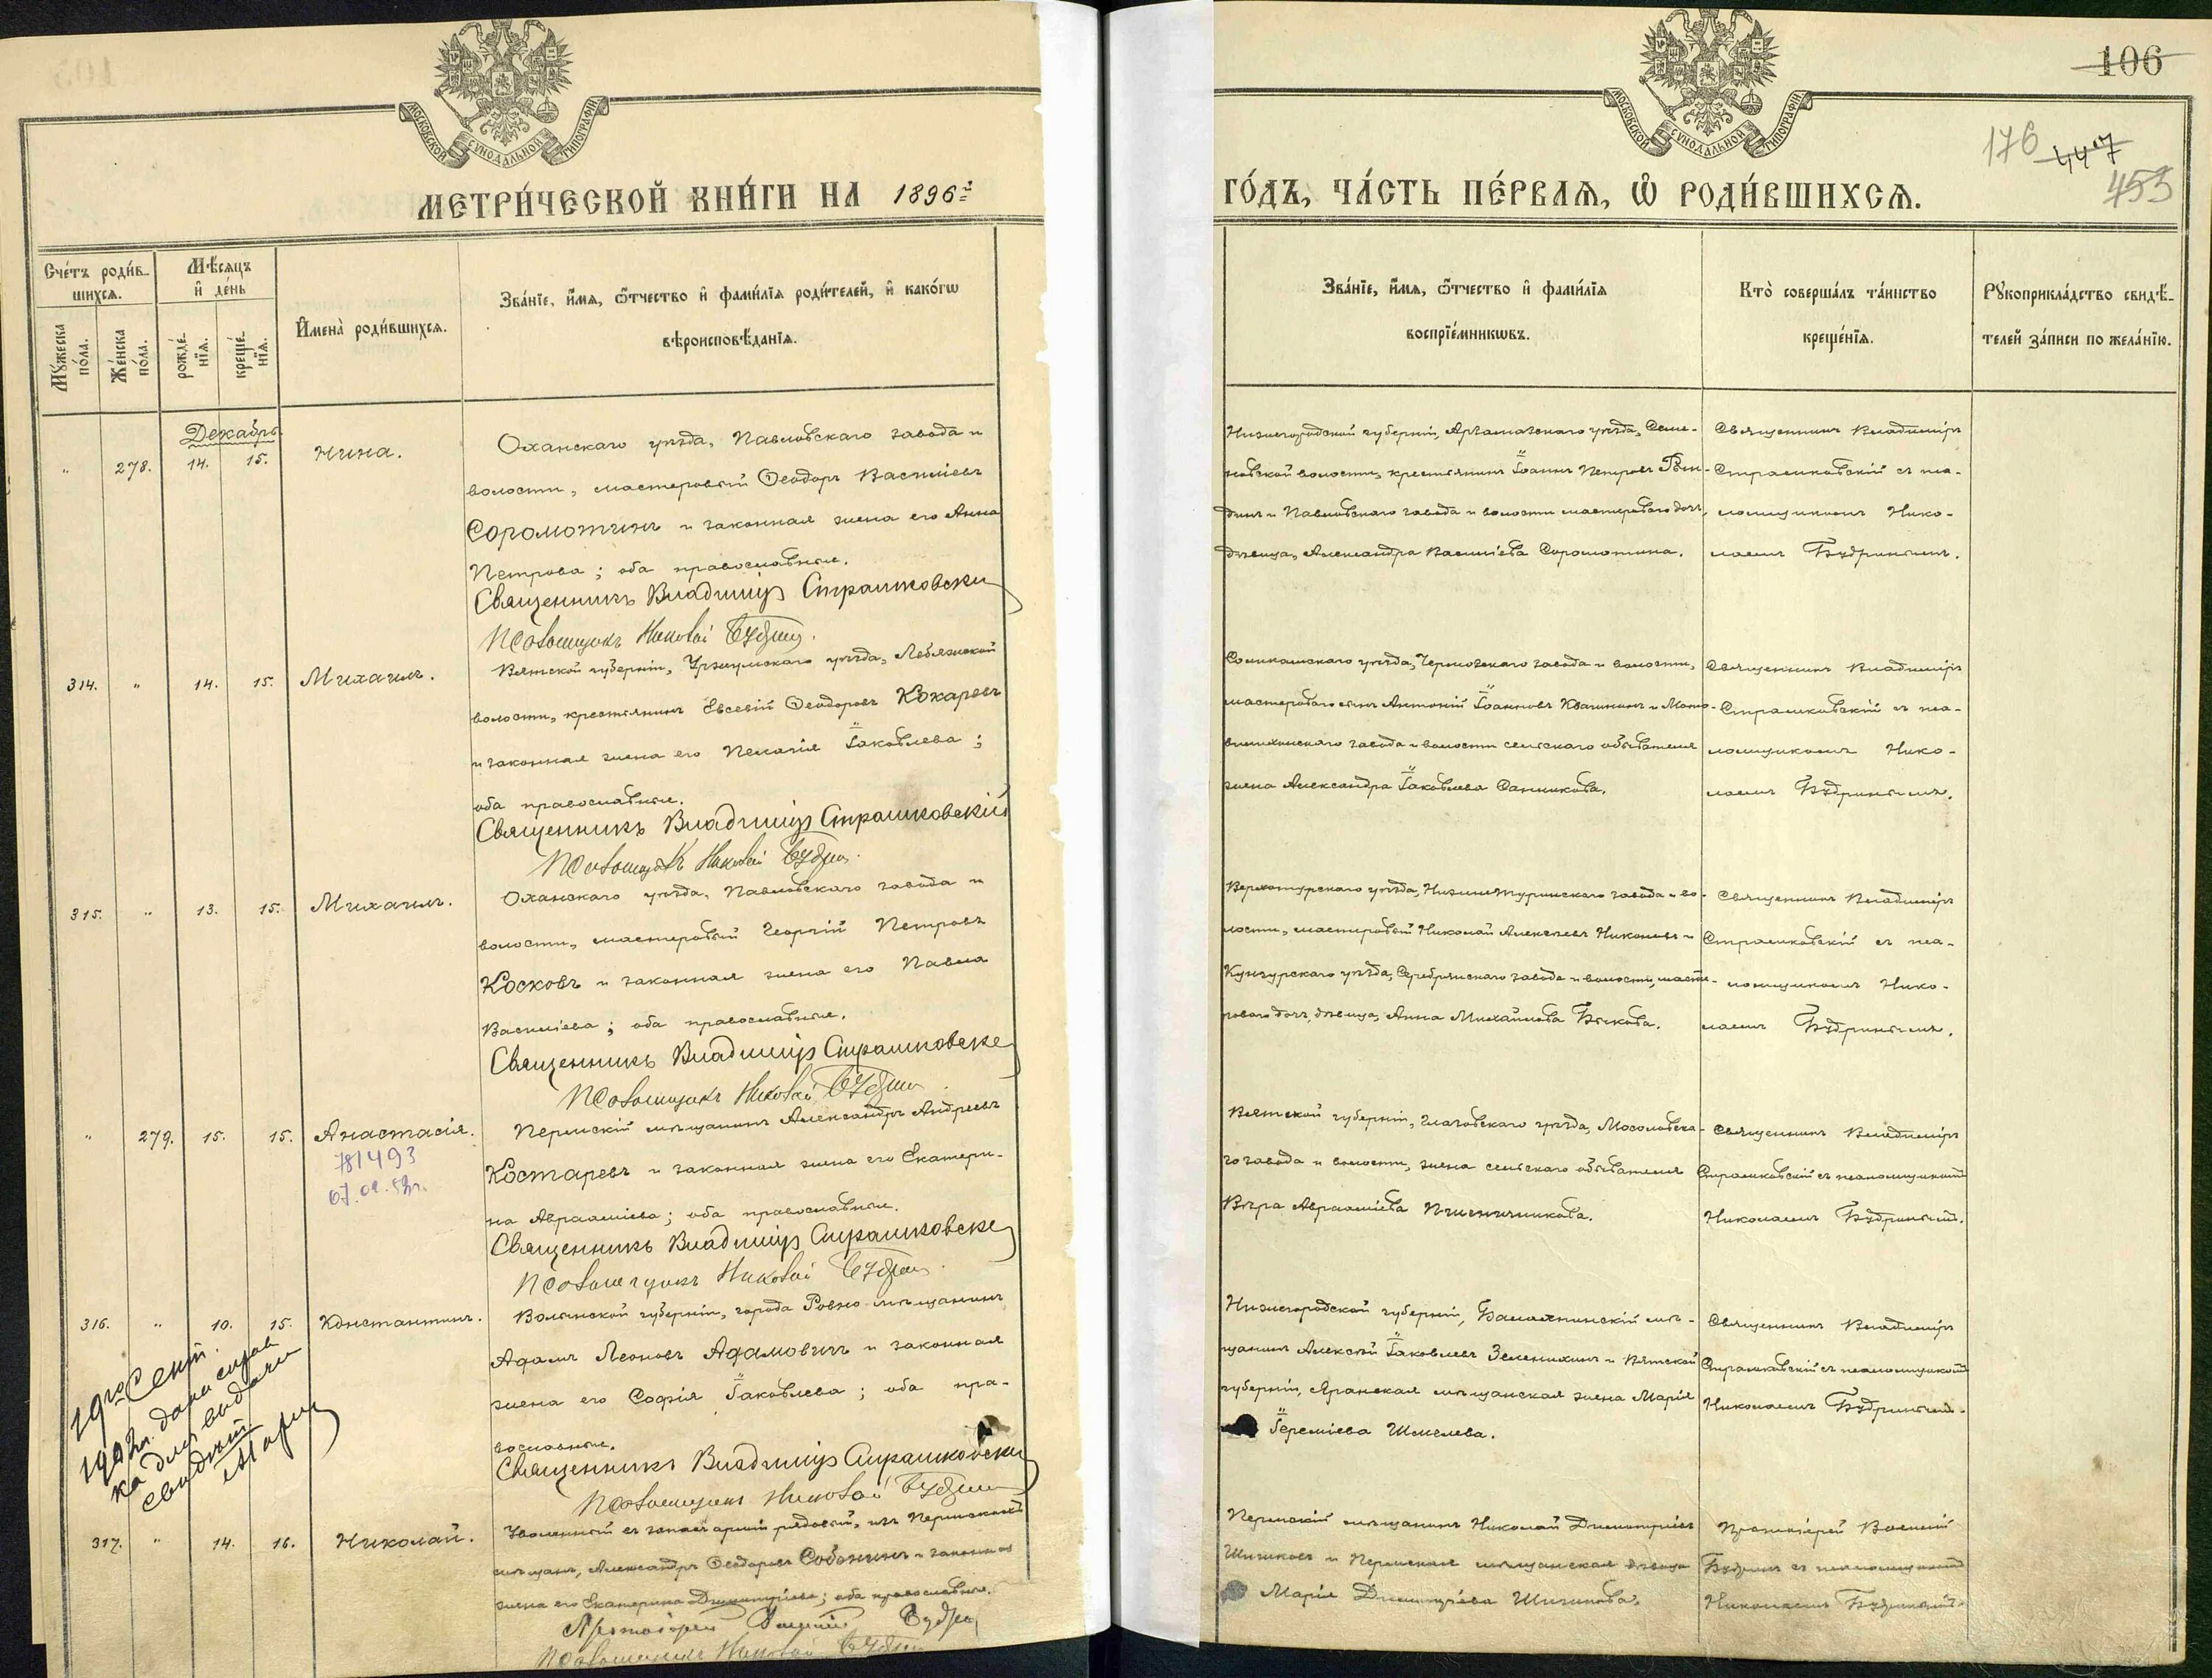 МОСКОВСКОЙ СУНОДАЛЬНОЙ ТИПОГРАФІИ
МЕТРИ́ЧЕСКОЙ КНИ́ГИ НА 1896й
Сче́тъ роди́в-
шихсѧ.
Мѣ́сѧцъ
и҆ де́нь
Мꙋ́жеска
по́ла.
Же́нска
по́ла.
рожде́-
нїѧ.
креще́-
нїѧ.
И҆мена̀ роди́вшихсѧ.
Зва́нїе, и҆́мѧ, ѻ҆́тчество и҆ фами́лїѧ роди́телей, и҆ како́гѡ
вѣроисповѣ́данїѧ.
Декабрь.
" 278. 14. 15. Нина.
Оханскаго уѣзда, Павловскаго завода и
волости, мастеровый Ѳеодоръ Василіевъ
Соромотинъ и законная жена его Анна
Петрова; оба православные.
Священникъ Владиміръ Страшковскій
Псаломщикъ Николай Будринъ.
314. " 14. 15. Михаилъ.
Вятской губерніи, Уржумскаго уѣзда, Лебяжской
волости, крестьянинъ Евсевій Ѳеодоровъ Кохаревъ
и законная жена его Пелагія Іаковлева;
оба православные.
Священникъ Владиміръ Страшковскій
Псаломщикъ Николай Будринъ.
315. " 13. 15. Михаилъ.
Оханскаго уѣзда, Павловскаго завода и
волости, мастеровый Георгій Петровъ
Косковъ и законная жена его Павла
Василіева; оба православные.
Священникъ Владиміръ Страшковскій
Псаломщикъ Николай Будринъ
" 279. 15. 15. Анастасія.
781493
07.02.
Пермскій мѣщанинъ Александръ Андреевъ
Костаревъ и законная жена его Екатери-
на Авраамієва; оба православные.
Священникъ Владиміръ Страшковскій
Псаломщикъ Николай Будринъ.
316. " 10. 15. Константинъ.
19го Сент.
190 г. дана справ
ка для выдачи
свидѣт.
Волынской губерніи, города Ровно мѣщанинъ
Адамъ Леоновъ Адамовичъ и законная
жена его Софія Іаковлева; оба пра-
вославные.
Священникъ Владиміръ Страшковскій
Псаломщикъ Николай Будринъ
317. " 14. 16. Николай.
Уволенный въ запасъ арміи рядовый, изъ Пермскихъ
мѣщанъ, Александръ Ѳеодоровъ Собянинъ и законная
жена его Екатерина Димитріева; оба православные.
Протоіерей Василій Будринъ
Псаломщикъ Николай Будринъ
МОСКОВСКОЙ СУНОДАЛЬНОЙ ТИПОГРАФІИ
106
176 447
453
ГО́ДЪ, ЧА́СТЬ ПЕ́РВАѦ, Ѡ҆ РОДИ́ВШИХСѦ.
Зва́нїе, и҆́мѧ, ѻ҆́тчество и҆ фами́лїѧ
воспрїе́мникѡвъ.
Кто̀ соверша́лъ та́инство
креще́нїѧ.
Рꙋкоприкла́дство свидѣ́-
телей за́писи по жела́нїю.
Нижегородской губерніи, Арзамазскаго уѣзда, Семе-
новской волости, крестьянинъ Іоаннъ Петровъ
и Павловскаго завода и волости мастероваго дочь,
дѣвица, Александра Василіева Соромотина.
Священникъ Владиміръ
Страшковскій съ пса-
ломщикомъ Нико-
лаемъ Будринымъ.
Соликамскаго уѣзда, Чермозскаго завода и волости,
мастероваго сынъ Антоній Іоанновъ Квашнинъ и Мото-
вилихинскаго завода и волости сельскаго обывателя
жена Александра Іаковлева Санникова.
Священникъ Владиміръ
Страшковскій съ пса-
ломщикомъ Нико-
лаемъ Будринымъ.
Верхотурскаго уѣзда, Нижнетуринскаго завода и во-
лости, мастеровый Николай Алексѣевъ Никоновъ и
Кунгурскаго уѣзда, Серебрянскаго завода и волости, масте-
роваго дочь, дѣвица, Анна Михайлова Быкова.
Священникъ Владиміръ
Страшковскій съ пса-
ломщикомъ Нико-
лаемъ Будринымъ.
Вятской губерніи, Глазовскаго уѣзда,
го завода и волости, жена сельскаго обывателя
Вѣра Авраамієва Пшеничникова.
Священникъ Владиміръ
Страшковскій съ псаломщикомъ
Николаемъ Будринымъ.
Нижегородской губерніи, Балахнинскій мѣ-
щанинъ Алексѣй Іаковлевъ Зеленихинъ и Вятской
губерніи, Яранская мѣщанская жена Марія
Іереміева Шмелева.
Священникъ Владиміръ
Страшковскій съ псаломщикомъ
Николаемъ Будринымъ.
Пермскій мѣщанинъ Николай Димитріевъ
Шишковъ и Пермская мѣщанская дѣвица
Марія Димитріева Шишкова.
Протоіерей Василій
Будринъ съ псаломщикомъ
Николаемъ Будринымъ.